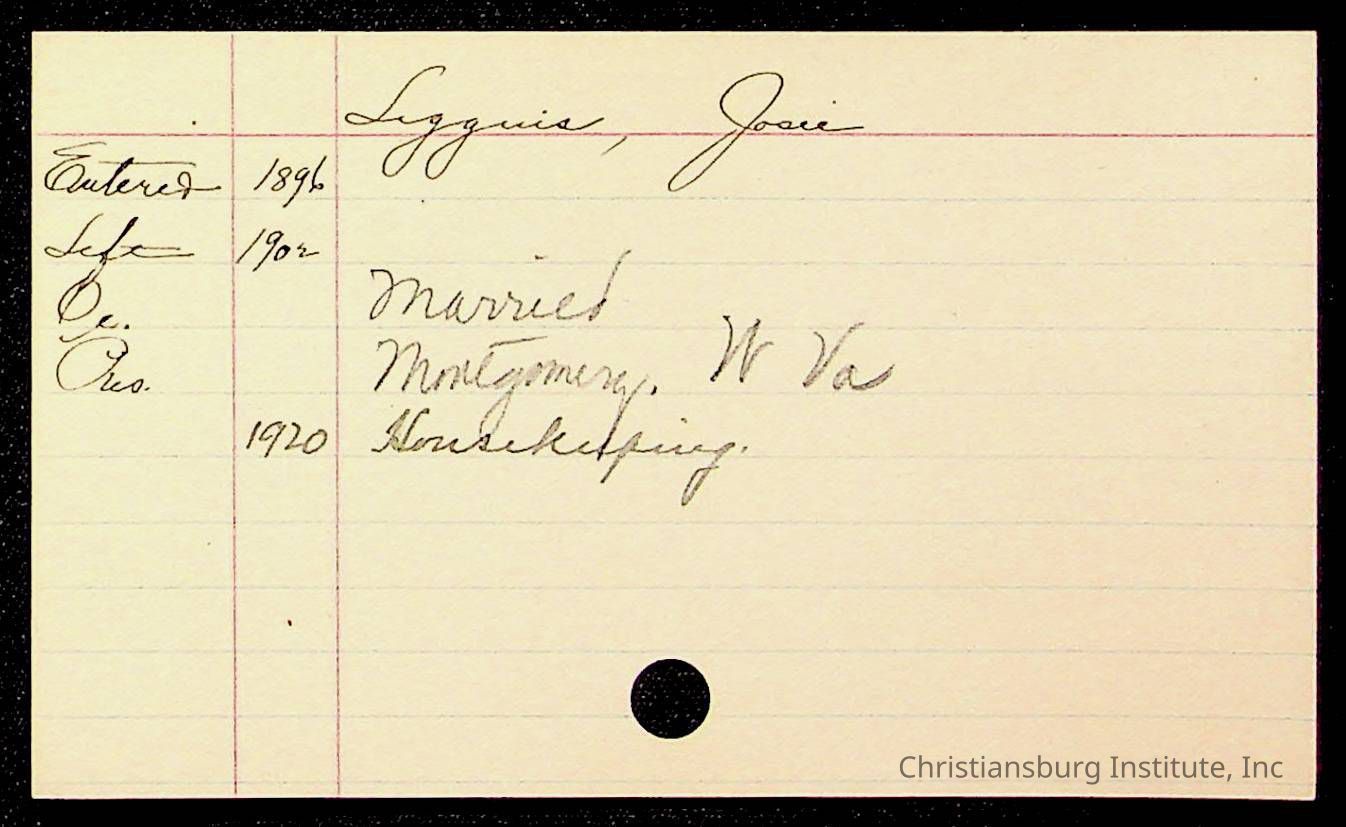 Liggins, Josie
Entered 1896
Left 1902
Oc. Married
Res. Montgomery. W Va
1920 Housekeeping.
Christiansburg Institute, Inc